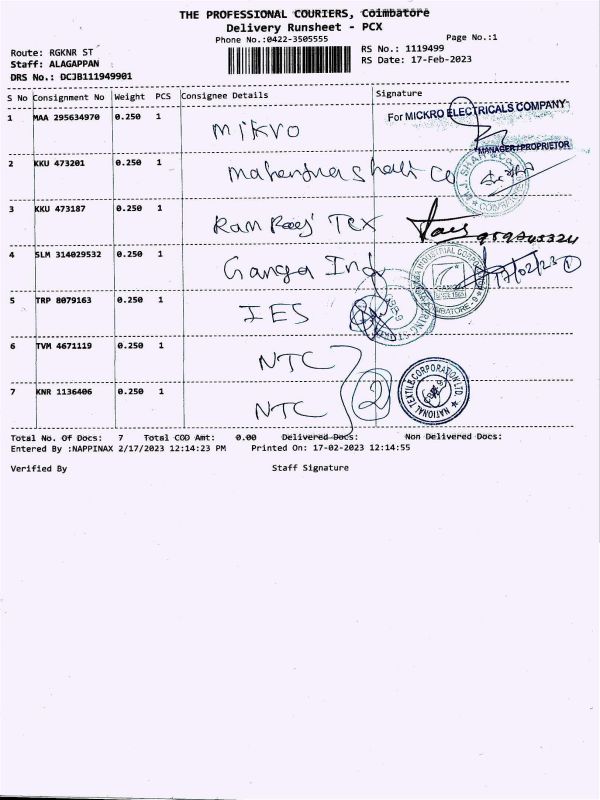 THE PROFESSIONAL COURIERS, Coimbatore
Delivery Runsheet - PCX
Phone No.:0422-3505555
Page No.:1
Route: RGKNR ST
Staff: ALAGAPPAN
DRS No.: DCJB111949901
RS No.: 1119499
RS Date: 17-Feb-2023
S No Consignment No Weight PCS Consignee Details Signature
1 MAA 295634970 0.250 1 Mikro For MICKRO ELECTRICALS COMPANY
MANAGER / PROPRIETOR
2 KKU 473201 0.250 1 Mahendra Shah Co M.J. SHAH & Co.
3 KKU 473187 0.250 1 Ram Raej Tex
4 SLM 314029532 0.250 1 Ganga Ind 17/02/23 1
5 TRP 8079163 0.250 1 IES
6 TVM 4671119 0.250 1 NTC
2 NATIONAL TEXTILE CORPORATION LTD.
7 KNR 1136406 0.250 1 NTC
Total No. Of Docs: 7 Total COD Amt: 0.00 Delivered Docs: Non Delivered Docs:
Entered By :NAPPINAX 2/17/2023 12:14:23 PM Printed On: 17-02-2023 12:14:55
Verified By Staff Signature